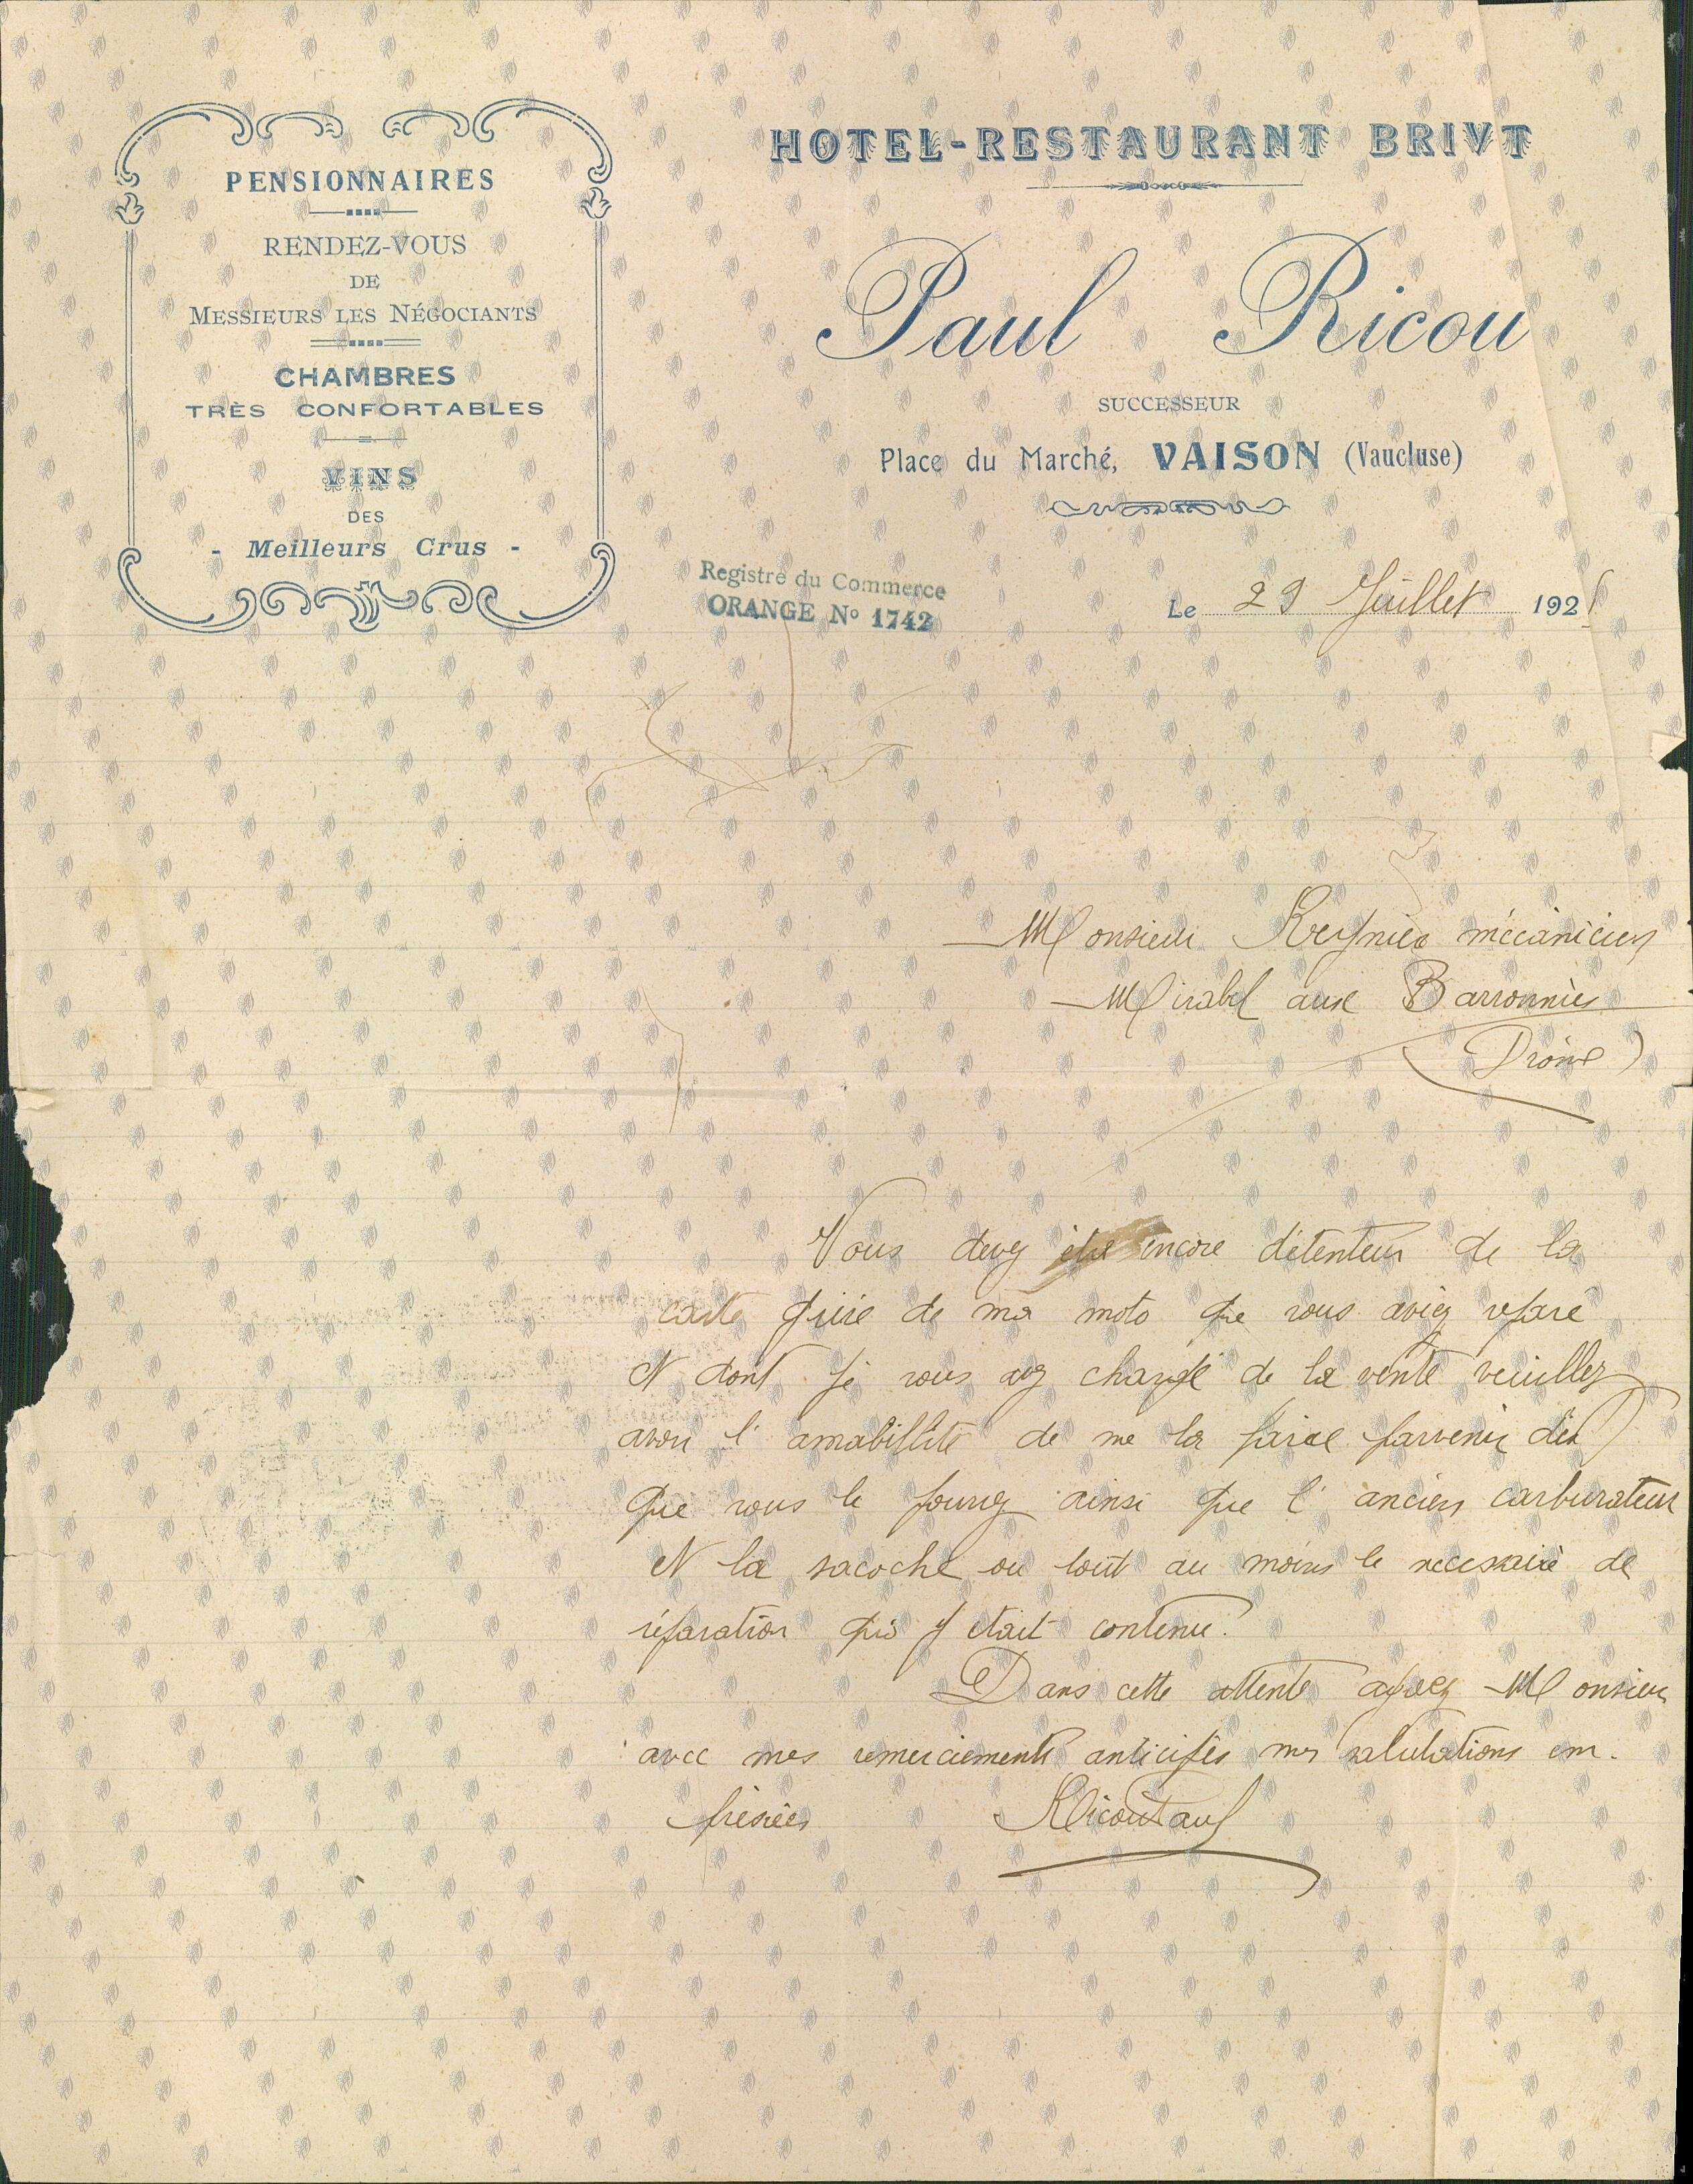 PENSIONNAIRES
RENDEZ-VOUS
DE
MESSIEURS LES NÉGOCIANTS
CHAMBRES
TRÈS CONFORTABLES
VINS
DES
- Meilleurs Crus -
HOTEL-RESTAURANT BRIVT
Paul Ricou
SUCCESSEUR
Place du Marché, VAISON (Vaucluse)
Registre du Commerce
ORANGE No 1742
Le 29 Juillet 192
Monsieur Reynier mécanicien
Mirabel aux Barronnies
(Drôme)
Vous devez être encore détenteur de la
carte grise de ma moto que vous aviez réparé
et dont je vous ay chargé de la vente veuillez
avoir l'amabillité de me la faire parvenir dès
que vous le pourrez ainsi que l'ancien carburateur
et la sacoche ou tout au moins le necessaire de
réparation qui y était contenu.
Dans cette attente agréez Monsieur
avec mes remerciements anticipés mes salutations em-
pressées Ricou Paul